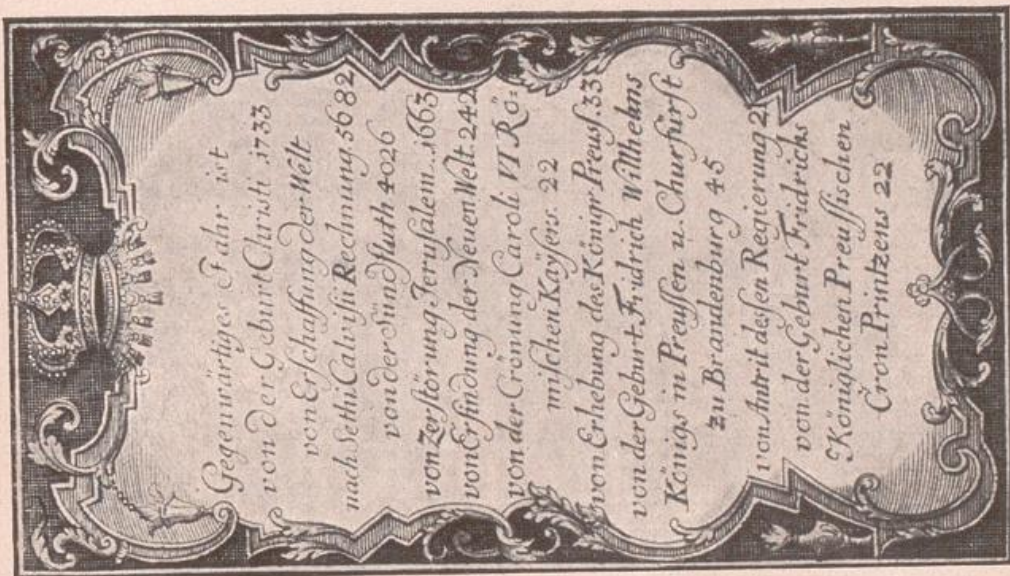 Gegenwärtiges Jahr ist
von der Geburt Christi .1733
von Erschaffung der Welt
nach Sethi Calvisii Rechnung. 5682
von der Sündfluth 4026
von Zerstörung Jerusalem...1663
von Erfindung der Neuen Welt. 242
von der Crönung Caroli VI Rö-
mischen Kaysers. 22
von Erhebung des Königr Preuss. 33
von der Geburt. Fridrich Willhelms
Königs in Preussen u. Churfürst
zu Brandenburg 45
von Antrit dessen Regierung 2
von der Geburt Fridrichs
Königlichen Preussischen
Cron Printzens 22